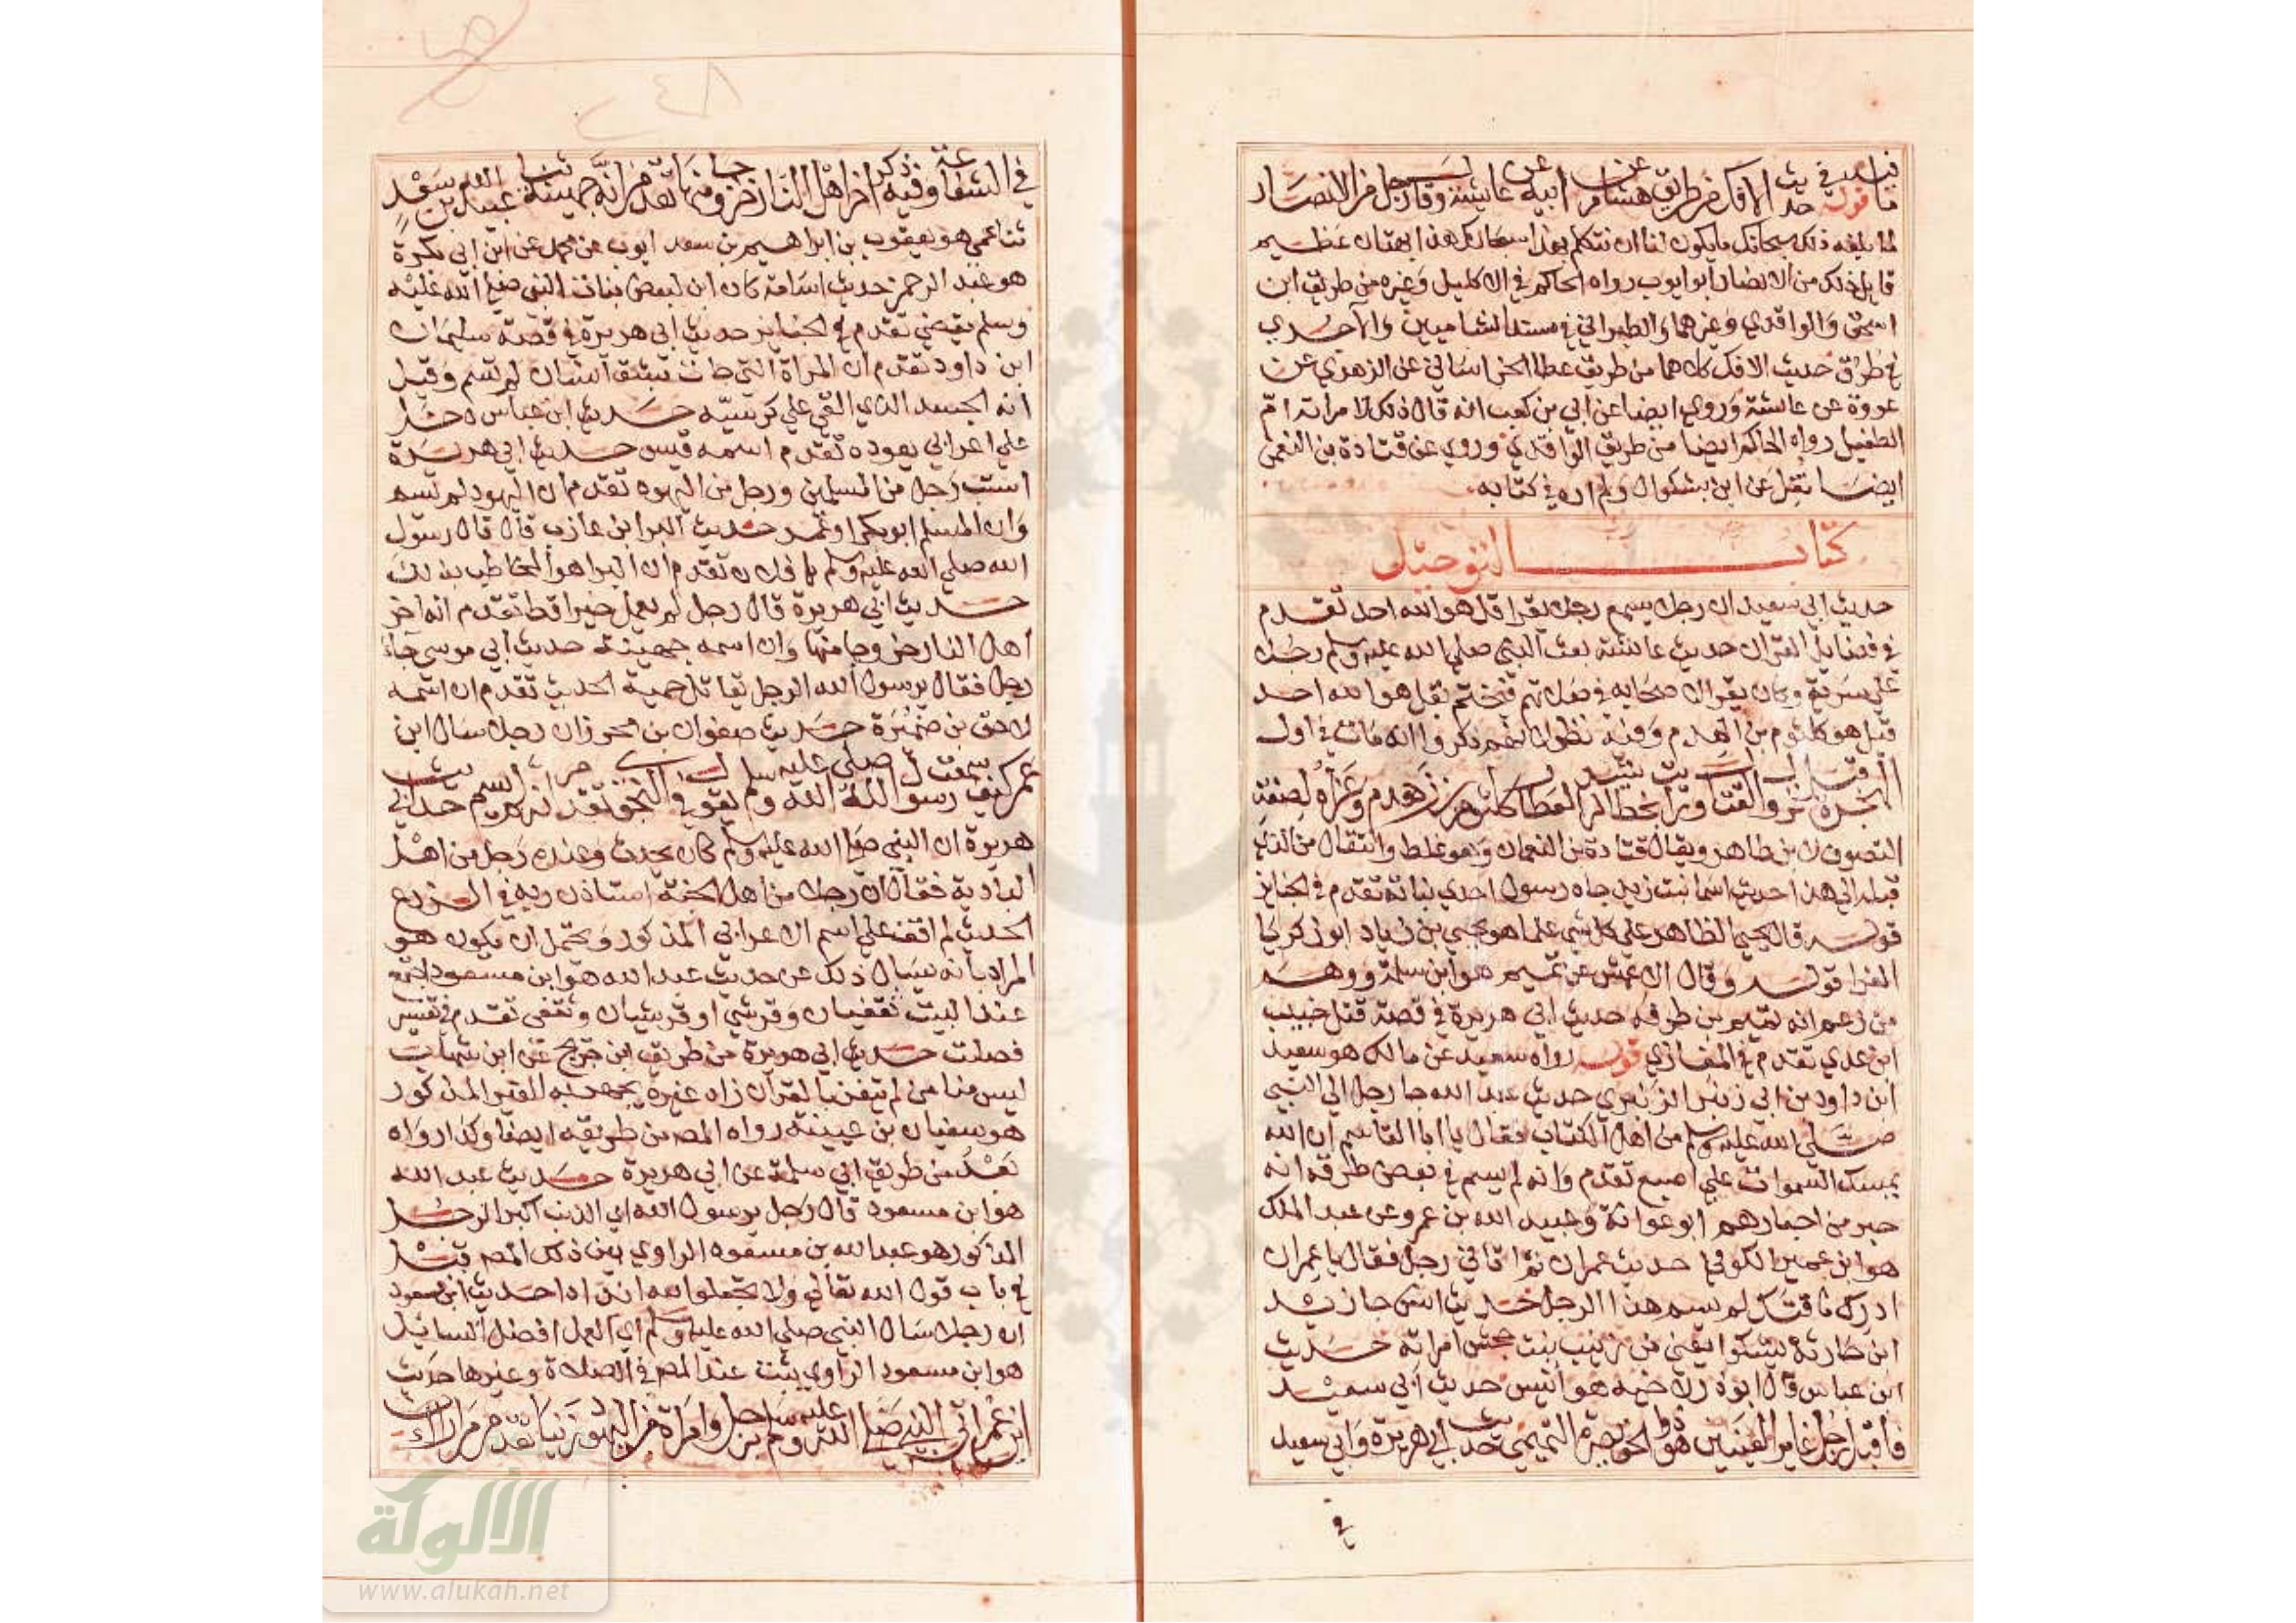 قوله في حديث الافك من طريق هشام عن ابيه عن عايشة وقال رجل من الانصار
لما بلغه ذلك سبحانك ما يكون لنا ان نتكلم بهذا سبحانك هذا بهتان عظيم
قايل ذلك من الانصار ابو ايوب رواه الحاكم في الاكليل وغيره من طريق ابن
اسحق والواقدي وغيرهما والطبراني في مسند الشاميين والآجري
في طرق حديث الافك كلاهما من طريق عطا الخراساني عن الزهري عن
عروة عن عايشة وروي ايضا عن ابي بن كعب انه قال ذلك لامراته ام
الطفيل رواه الحاكم ايضا من طريق الواقدي وروي عن قتادة بن النعمن
ايضا نقل عن ابن بشكوال ولم اره في كتابه
كتاب التوحيد
حديث ابي سعيد ان رجلا سمع رجلا يقرا قل هو الله احد تقدم
في فضايل القران حديث عائشة بعث النبي صلى الله عليه وسلم رجلا
على سرية وكان يقرا لاصحابه في صلاتهم فيختم بقل هو الله احد
قيل هو كلثوم بن الهدم وفيه نظر لانهم ذكروا انه مات في اول
الهجرة قبل القتال وبخط الرشيد العطار كلثوم بن زهدم وعزاه لصفة
التصوف لابن طاهر ويقال قتادة بن النعمان وهو غلط وانتقال من الذي
قبله الى هذا حديث اسامة بن زيد جاه رسول احدي بناته تقدم في الجنايز
قوله قال يحيى الظاهر على كل شي علما هو يحيى بن زياد ابو زكريا
الفرا قوله وقال الاعمش عن تميم هو ابن سلمة ووهم
من زعم انه تميم بن طرفه حديث ابي هريرة في قصة قتل خبيب
ابن عدي تقدم في المغازي قوله رواه سعيد عن مالك هو سعيد
ابن داود بن ابي زنبر الزنبري حديث عبد الله جا رجل الي النبي
صلى الله عليه وسلم من اهل الكتاب فقال يا ابا القاسم ان الله
يمسك السموات على اصبع تقدم وانه لم يسم في بعض طرقه انه
حبر من احبارهم ابو عوانة وعبيد الله بن عمرو عن عبد الملك
هو ابن عمير الكوفي حديث عمران ثم اتاني رجل فقال يا عمران
ادرك ناقتك لم يسم هذا الرجل حديث انس جا زيد
ابن حارثة يشكوا يعني من زينب بنت جحش امراته حديث
ابن عباس قال ابو ذر لاخيه هو انيس حديث ابي سعيد
فاقبل رجل غاير العينين هو ذو الخويصرة التميمي حديث ابي هريرة وابي سعيد
في
٢٤٨
في الشفاعة وفيه ذكر اخر اهل النار خروجا منها تقدم انه جهينة ثنا عبيد الله بن سعد
ثنا عمي هو يعقوب بن ابراهيم بن سعد ايوب عن محمد عن ابن ابي بكرة
هو عبد الرحمن حديث اسامة كان ابن لبعض بنات النبي صلى الله عليه
وسلم يقضي تقدم في الجنايز حديث ابي هريرة في قصة سليمان
ابن داود تقدم ان المراة التي جات بشق انسان لم تسم وقيل
انه الجسد الذي القي على كرسيه حديث ابن عباس دخل
على اعرابي يعوده تقدم اسمه قيس حديث ابي هريرة
استب رجل من المسلمين ورجل من اليهود تقدم ان اليهود لم يسم
وان المسلم ابو بكر او عمر حديث البرا بن عازب قال قال رسول
الله صلى الله عليه وسلم يا فلان تقدم ان البرا هو المخاطب بذلك
حديث ابي هريرة قال رجل لم يعمل خيرا قط تقدم انه اخر
اهل النار خروجا منها وان اسمه جهينة حديث ابي موسى جاء
رجل فقال يرسول الله الرجل يقاتل حمية الحديث تقدم ان اسمه
لاحق بن ضميرة حديث صفوان بن محرز ان رجلا سال ابن
عمر كيف سمعت رسول الله صلى الله عليه وسلم يقول في النجوى تقدم انه لم يسم حديث ابي
هريرة ان النبي صلى الله عليه وسلم كان يحدث وعنده رجل من اهل
البادية فقال ان رجلا من اهل الجنة استاذن ربه في الزرع
الحديث لم اقف على اسم الاعرابي المذكور ويحتمل ان يكون هو
المراد بانه يسال ذلك عن حديث عبد الله هو ابن مسعود اجتمع
عند البيت ثقفيان وقرشي او قرشيان وثقفي تقدم في تفسير
فصلت حديث ابي هريرة من طريق ابن جريج عن ابن شهاب
ليس منا من لم يتغن بالقرآن زاد غيره يجهر به الغير المذكور
هو سفيان بن عيينة رواه المص من طريقه ايضا وكذا رواه
بعد من طريق ابي سلمة عن ابي هريرة حديث عبد الله
هو ابن مسعود قال رجل يرسول الله اي الذنب اكبر الرجل
المذكور هو عبد الله بن مسعود الراوي بين ذلك المص قبل
في باب قول الله تعالى ولا تجعلوا لله اندادا حديث ابن مسعود
ان رجلا سال النبي صلى الله عليه وسلم اي العمل افضل السايل
هو ابن مسعود الراوي بينت عند المص في الصلاة وغيرها حديث
ابن عمر اتي النبي صلى الله عليه وسلم برجل وامراة من اليهود زنيا تقدم مرارا
الألوكة
www.alukah.net